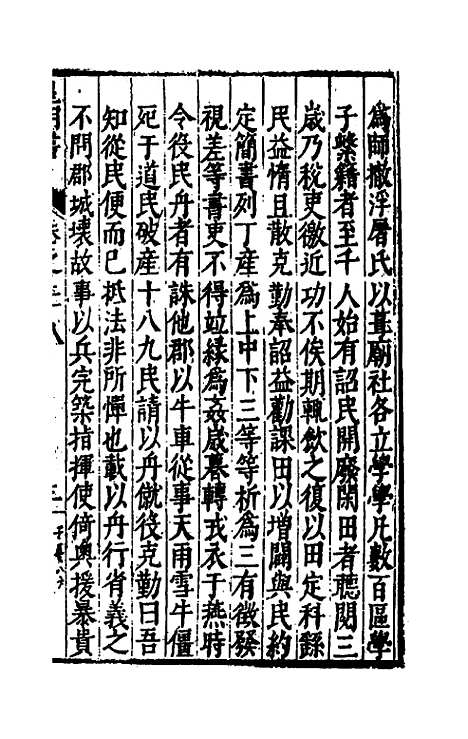 為師撤浮屠氏以其廟社各立學學凡數百區學
子繫籍者至千人始有詔民開廢閑田者聽閱三
歲乃稅吏徼近功不俟期輒歛之復以田定科繇
民益惰且散克勤奉詔益勸課田以增闢與民約
定簡書列丁産為上中下三等等析為三有徵發
視差等書吏不得竝緣為姦歲暮轉戎衣于燕時
令役民舟者有誅他郡以牛車從事天雨雪牛僵
死于道民破産十八九民請以舟僦役克勤曰吾
知從民便而已抵法非所憚也載以舟行省義之
不問郡城壊故事以兵完築指揮使倚輿援暴貴